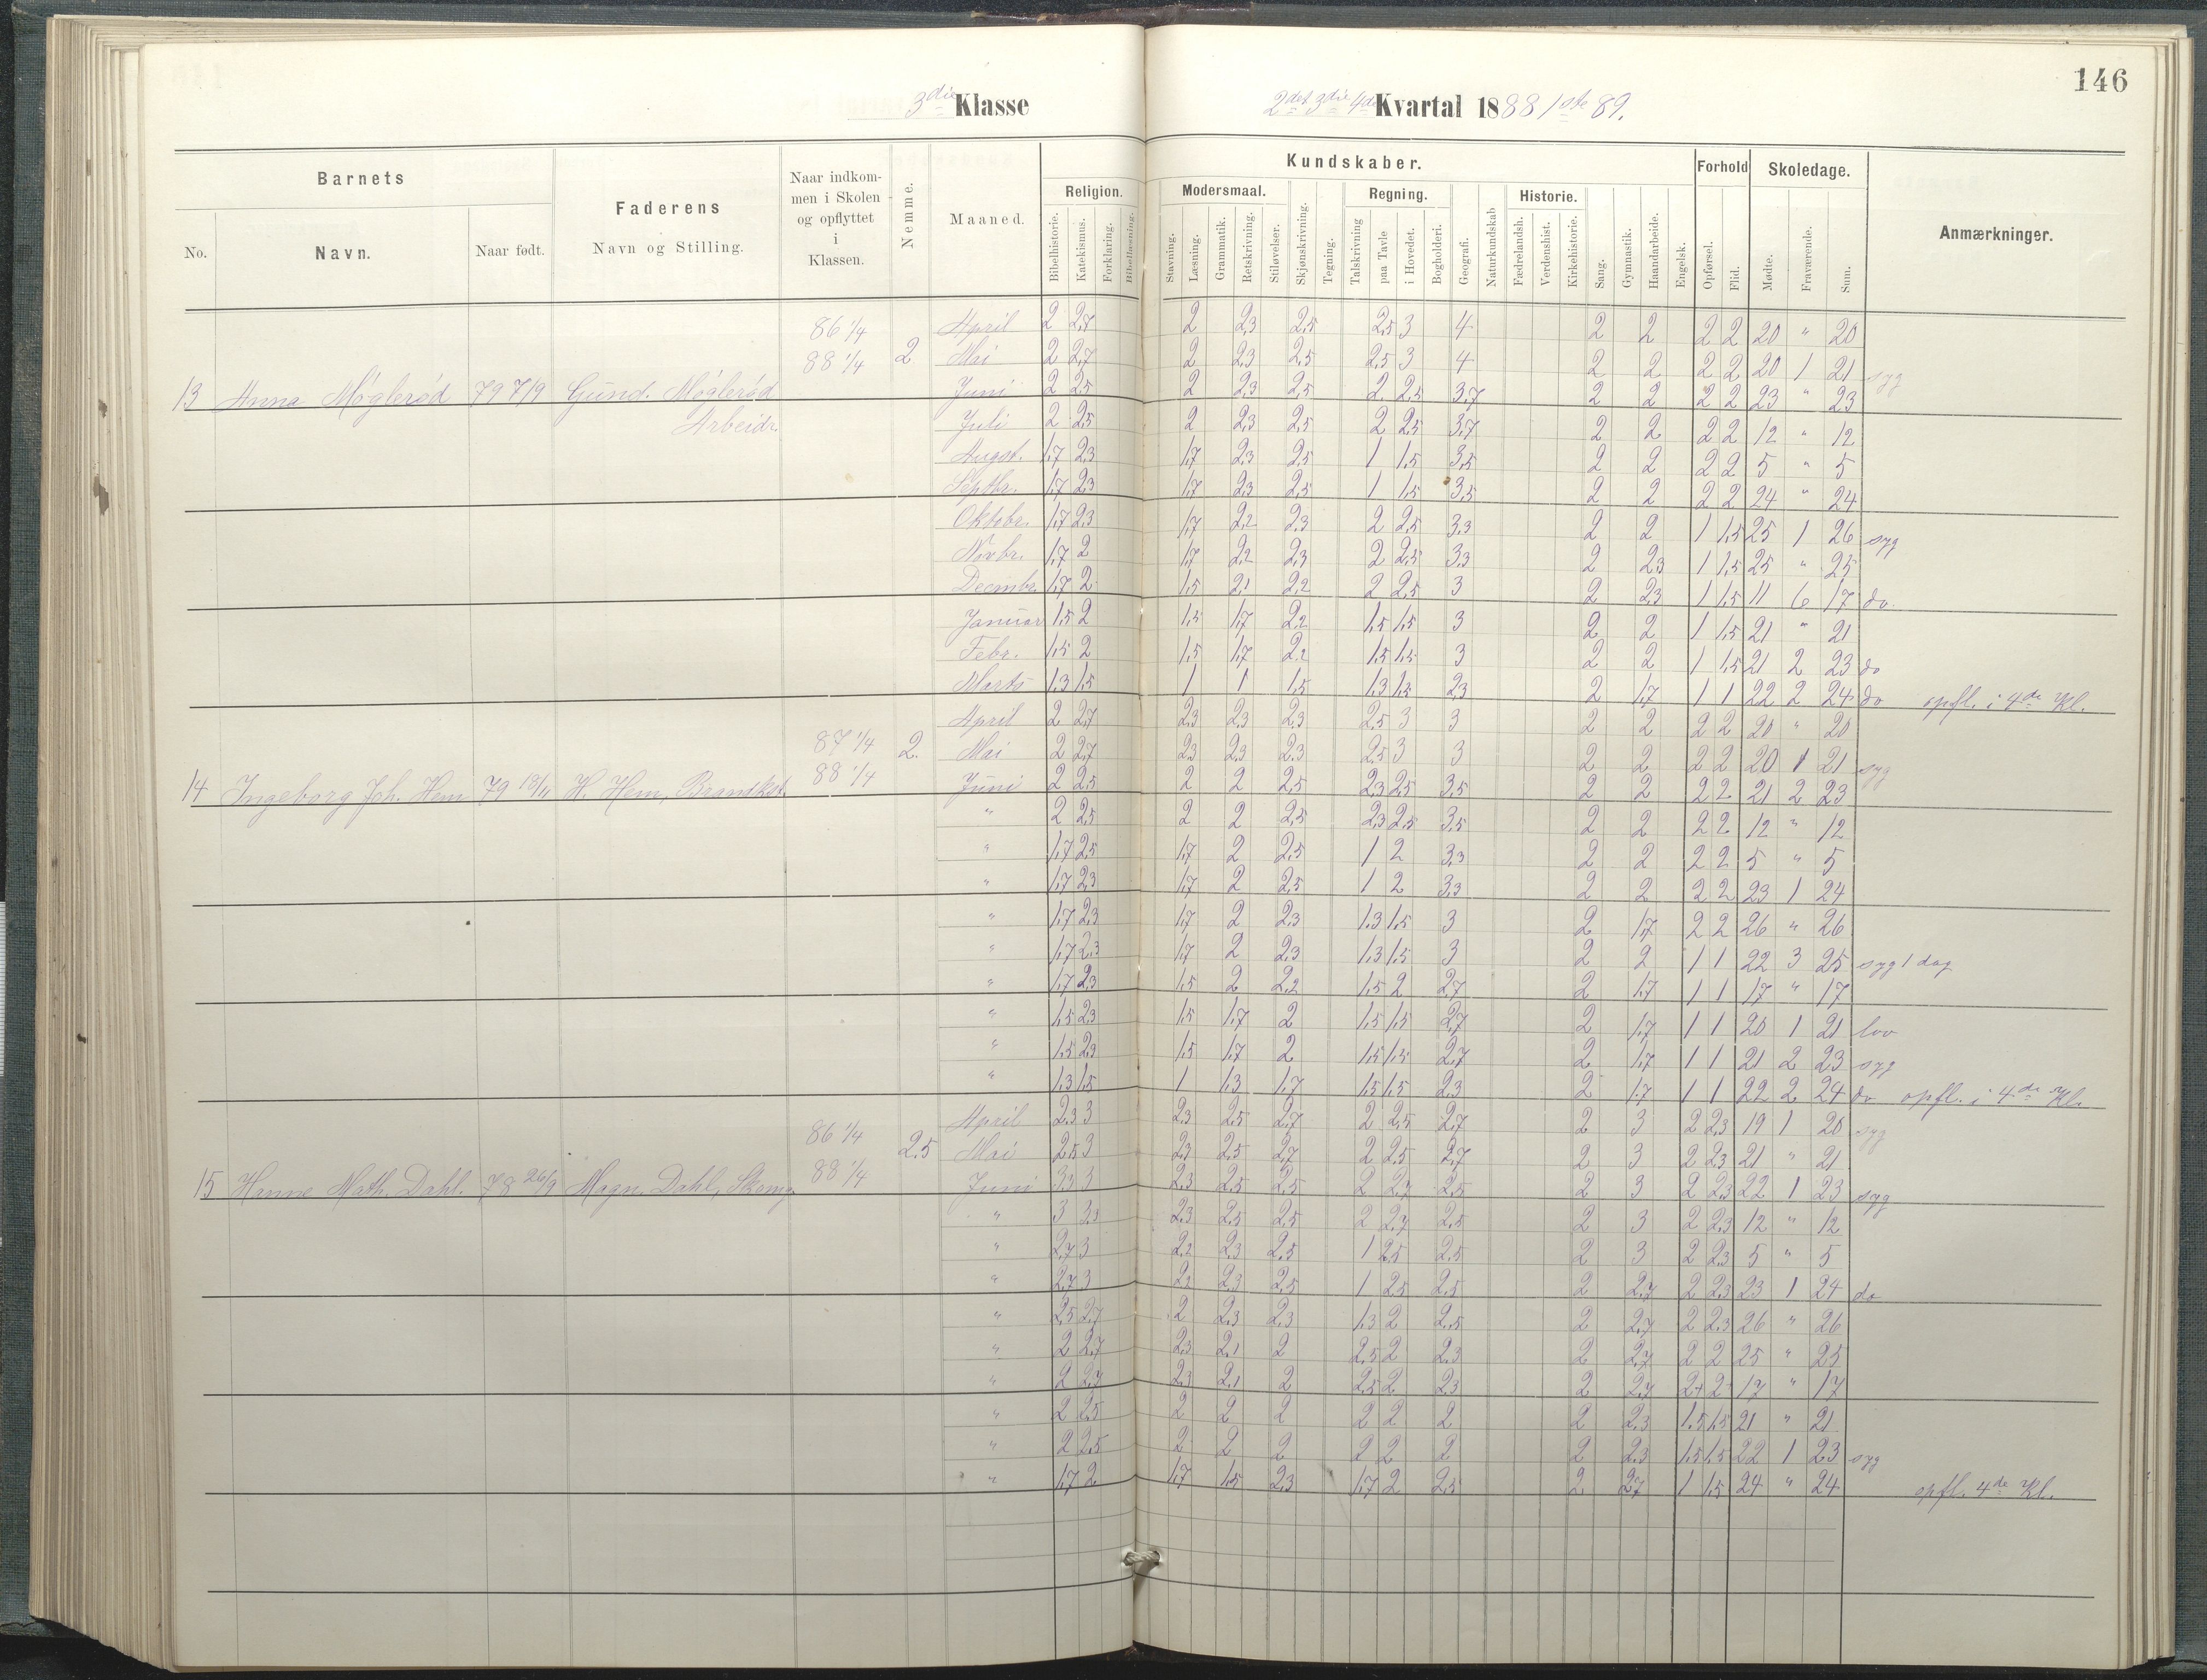 146
3die Klasse
2det 3die 4de Kvartal 1888 1ste 89.
Barnets
Faderens
Naar indkommen i Skolen og opflyttet i Klassen.
Nemme.
Maaned.
Religion.
Kundskaber.
Forhold
Skoledage.
Anmærkninger.
Modersmaal.
Regning.
Historie.
No.
Navn.
Naar født.
Navn og Stilling.
Bibelhistorie.
Katekismus.
Forklaring.
Bibellæsning.
Stavning.
Læsning.
Grammatik.
Retskrivning.
Stiløvelser.
Skjønskrivning.
Tegning.
Talskrivning
paa Tavle
i Hovedet.
Bogholderi.
Geografi.
Naturkundskab
Fædrelandsh.
Verdenshist.
Kirkehistorie.
Sang.
Gymnastik.
Haandarbeide.
Engelsk.
Opførsel.
Flid.
Mødte.
Fraværende.
Sum.
86 1/4 April 2 2,7 2 2,3 2,5 2,5 3 4 2 2 2 2 20 " 20
88 1/4 2 Mai 2 2,7 2 2,3 2,5 2,5 3 4 2 2 2 2 20 1 21 syg
13 Anna Møglerød 79 7/9 Gund. Møglerød Juni 2 2,5 2 2,3 2,5 2 2,5 3,7 2 2 2 2 23 " 23
Arbeidr. Juli 2 2,5 2 2,3 2,5 2 2,5 3,7 2 2 2 2 12 " 12
Augst. 1,7 2,3 1,7 2,3 2,5 1 1,5 3,5 2 2 2 2 5 " 5
Septbr. 1,7 2,3 1,7 2,3 2,5 1 1,5 3,5 2 2 2 2 24 " 24
Oktobr. 1,7 2,3 1,7 2,2 2,3 2 2,5 3,3 2 2 1 1,5 25 1 26 syg
Novbr. 1,7 2 1,7 2,2 2,3 2 2,5 3,3 2 2,3 1 1,5 25 " 25
Decmbr. 1,7 2 1,5 2,1 2,2 2 2,5 3 2 2,3 1 1,5 11 6 17 do.
Januar 1,5 2 1,5 1,7 2,2 1,5 1,5 3 2 2 1 1,5 21 " 21
Febr. 1,5 2 1,5 1,7 2,2 1,5 1,5 3 2 2 1 1,5 21 2 23 do
Marts 1,3 1,5 1 1 1,5 1,3 1,5 2,3 2 1,7 1 1 22 2 24 do opfl. i 4de Kl.
April 2 2,7 2,3 2,3 2,3 2,5 3 3 2 2 2 2 20 " 20
87 1/4 2. Mai 2 2,7 2,3 2,3 2,3 2,5 3 3 2 2 2 2 20 1 21 syg
14 Ingeborg Joh. Hem 79 18/11 H. Hem, Brandkst. 88 1/4 Juni 2 2,5 2 2 2,5 2,3 2,5 3,5 2 2 2 2 21 2 23
" 2 2,5 2 2 2,5 2,3 2,5 3,5 2 2 2 2 12 " 12
" 1,7 2,5 1,7 2 2,5 1 2 3,3 2 2 2 2 5 " 5
" 1,7 2,3 1,7 2 2,5 1 2 3,3 2 2 2 2 23 1 24
" 1,7 2,3 1,7 2 2,3 1,3 1,5 3 2 1,7 2 2 26 " 26
" 1,7 2,3 1,7 2 2,3 1,3 1,5 3 2 2 1 1 22 3 25 syg 1 dag
" 1,7 2,3 1,5 2 2,2 1,5 2 2,7 2 1,7 1 1 17 " 17
" 1,5 2,3 1,5 1,7 2 1,5 1,5 2,7 2 1,7 1 1 20 1 21 lov
" 1,5 2,3 1,5 1,7 2 1,5 1,5 2,7 2 1,7 1 1 21 2 23 syg
" 1,3 1,5 1 1,3 1,7 1,5 1,5 2,3 2 1,7 1 1 22 2 24 do opfl. i 4de Kl.
April 2,3 3 2,3 2,5 2,7 2 2,5 2,7 2 3 2 2,3 19 1 20 syg
86 1/4 2,5 Mai 2,5 3 2,3 2,5 2,7 2 2,5 2,7 2 3 2 2,3 21 " 21
15 Hanne Math. Dahl. 78 26/9 Magn. Dahl, Skomg. 88 1/4 Juni 3,3 3 2,3 2,5 2,5 2 2,7 2,5 2 3 2 2,3 22 1 23 syg
" 3 3,3 2,3 2,5 2,5 2 2,7 2,5 2 3 2 2,3 12 " 12
" 2,7 3 2,2 2,3 2,5 1 2,5 2,5 2 3 2 2,3 5 " 5
" 2,7 3 2,2 2,3 2,5 1 2,5 2,5 2 2,7 2 2,3 23 1 24 do
" 2,5 2,7 2 2,3 2,3 1,3 2 2,5 2 2,7 2 2,3 26 " 26
" 2 2,7 2,3 2,1 2 2,5 2 2,3 2 2,7 2 2 25 " 25
" 2 2,7 2,3 2,1 2 2,5 2 2,3 2 2,7 2+ 2 17 " 17
" 2 2,5 2 2 2 2 2 2 2 2,3 1,5 1,5 21 " 21
" 2 2,5 2 2 2 2 2 2 2 2,3 1,5 1,5 22 1 23 syg
" 1,7 2 1,7 1,5 2,3 1,7 2 2,5 2. 2,7 1 1,5 24 " 24 opfl. 4de Kl.